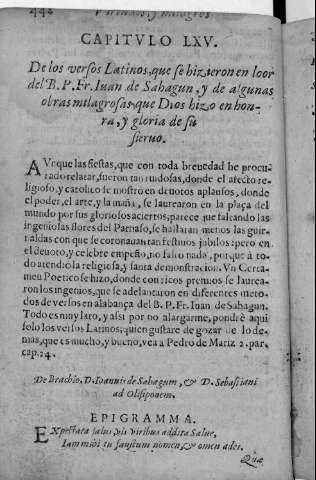 442 Virtudes, y milagros
CAPITVLO LXV.
De los versos Latinos, que se hizieron en loor
del B. P. Fr. Iuan de Sahagun, y de algunas
obras milagrosas que Dios hizo en hon-
ra, y gloria de su
sieruo.
AVnque las fiestas, que con toda breuedad he procu-
rado relatar, fueron tan ruidosas, donde el afecto re-
ligioso, y catolico se mostrò en deuotos aplausos, donde
el poder, el arte, y la maña, se laurearon en la plaça del
mundo por sus gloriosos aciertos, parece que faltando las
ingeniosas flores del Parnaso, se hallaran menos las guir-
naldas con que se coronauan tan festiuos jubilos: pero en
el deuoto, y celebre empeño, no faltò nada, porque à to-
do atendio la religiosa, y santa demonstracion. Vn Certa-
men Poetico se hizo, donde con ricos premios se laurea-
ron los ingenios, que se adelantaron en diferentes meto-
dos de versos en alabança del B. P. Fr. Iuan de Sahagun.
Todo es muy lato, y assi por no alargarme, pondrè aqui
solo los versos Latinos, quien gustare de gozar de lo de-
mas, que es mucho, y bueno, vea a Pedro de Mariz 2. par.
cap. 24.
De Brachio, D. Ioannis de Sahagum, & D. Sebastiani
ad Olisiponem.
EPIGRAMMA.
EXpectata salus, vis viribus addita Salue,
Iam mihi tu faustum nomen, & omen ades.
Quæ